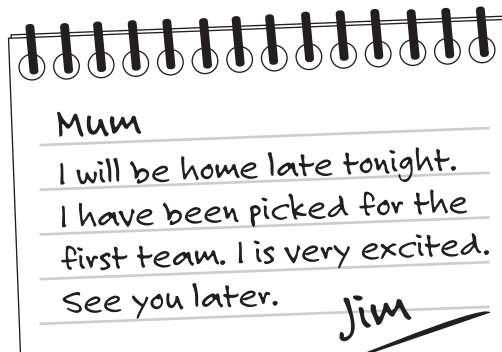 Mum
I will be home late tonight.
I have been picked for the
first team. I is very excited.
See you later.
Jim